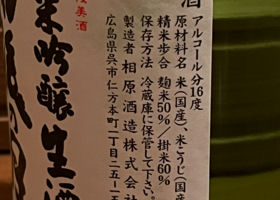 アルコール分16度
原材料名 米(国産)、米こうじ(国産
精米歩合 麹米50%/掛米60%
保存方法 冷蔵庫に保管して下さい。
製造者 相原酒造株式会社
広島県呉市仁方本町一丁目二五-一五
美酒
米吟醸生酒